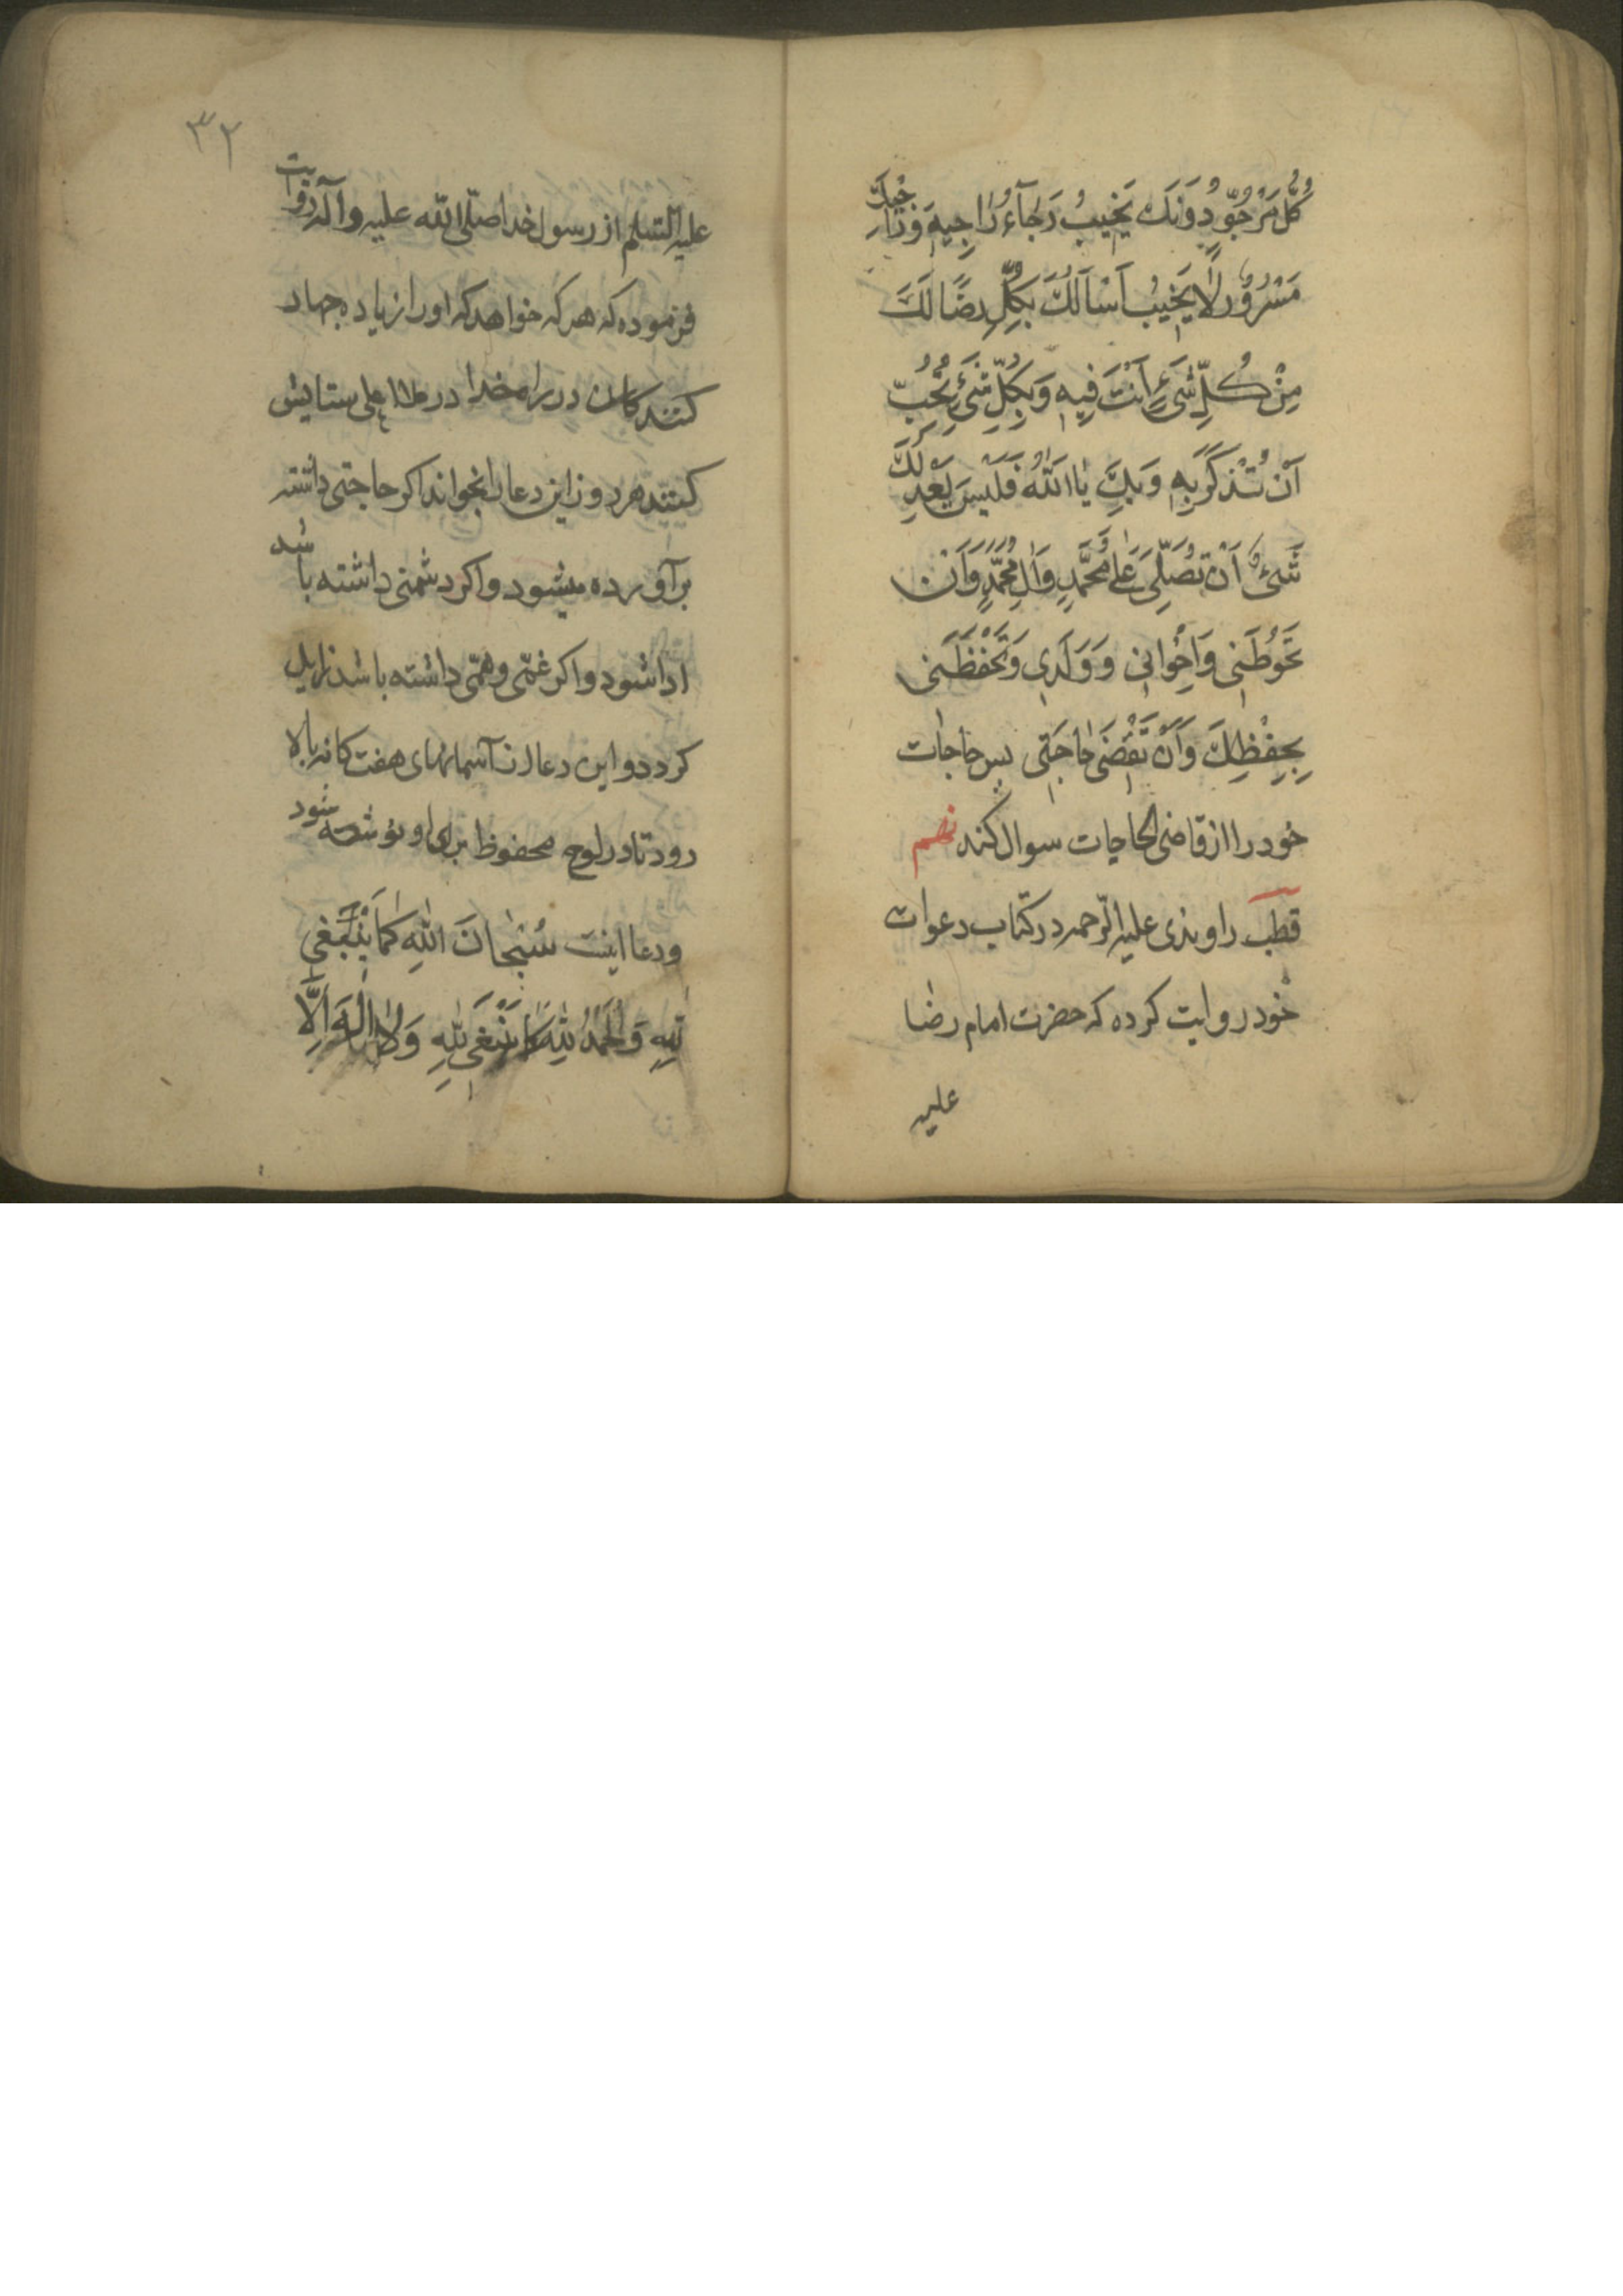 كُلُّ مَرْجُوٍّ دُونَكَ يَخِيبُ رَجَآءُ رَاجِيهِ وَرَاجِيكَ
مَسْرُورٌ لَا يَخِيبُ اَسْاَلُكَ بِكُلِّ رِضًا لَكَ
مِنْ كُلِّ شَيْءٍ اَنْتَ فِيهِ وَبِكُلِّ شَيْءٍ تُحِبُّ
اَنْ تُذْكَرَ بِهِ وَبِكَ يَا اَللّٰهُ فَلَيْسَ يَعْدِلُكَ
شَيْءٌ اَنْ تُصَلِّيَ عَلٰى مُحَمَّدٍ وَآلِ مُحَمَّدٍ وَاَنْ
تَحُوطَنِي وَاِخْوَانِي وَوَلَدِي وَتَحْفَظَنِي
بِحِفْظِكَ وَاَنْ تَقْضِيَ حَاجَتِي پس حاجات
خود را از قاضی الحاجات سوال کند نهم
قطب راوندی علیه الرحمه در کتاب دعوات
خود روایت کرده که حضرت امام رضا
علیه
۳۲
علیه السّلم از رسول خدا صلّی الله علیه وآله روایت
فرموده که هر که خواهد که او را زیاده جهاد
کنندکان در راه خدا در ملاء اعلی ستایش
کنند هر روز این دعا را بخواند اکر حاجتی داشته
برآورده میشود و اکر دشمنی داشته باشد
ادا شود و اکر غمّی و همّی داشته باشد زایل
کردد و این دعا از آسمانهای هفت کانه بالا
رود تا در لوح محفوظ برای او نوشته شود
و دعا اینست سُبْحَانَ اللّٰهِ كَمَا يَنْبَغِي
لِلّٰهِ وَالْحَمْدُ لِلّٰهِ كَمَا يَنْبَغِي لِلّٰهِ وَلَا اِلٰهَ اِلَّا